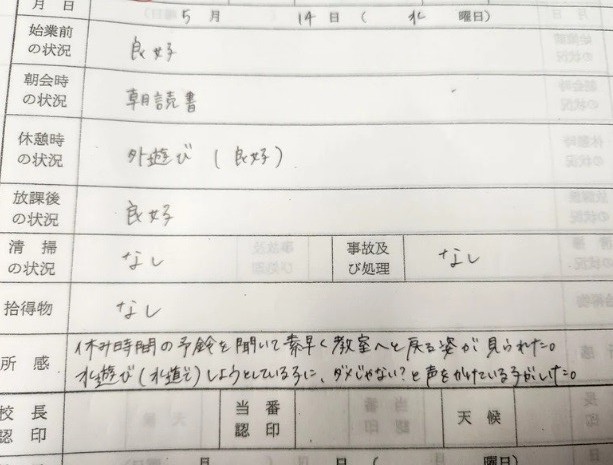 月 日 5月 14日 (水 曜日)
始業前の状況 良好
朝会時の状況 朝読書
休憩時の状況 外遊び (良好)
放課後の状況 良好
清掃の状況 なし 事故及び処理 なし
拾得物 なし
所感 休み時間の予鈴を聞いて素早く教室へと戻る姿が見られた。
水遊び(水道で)しようとしている子に、ダメじゃない?と声をかけている子がいた。
校長認印 当番認印 天候
月 日 ( 曜日)